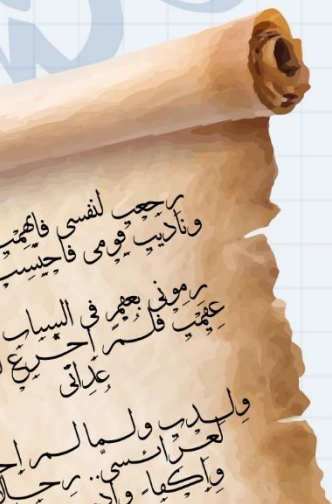 رجعت لنفسي فاتهمت
وناديت قومي فاحتسبت
رموني بعقم في الشباب
عقمت فلم أجزع ل
عداتي
ولدت ولما لم أج
لعرائسي.. رجالا
وأكفاء وأد